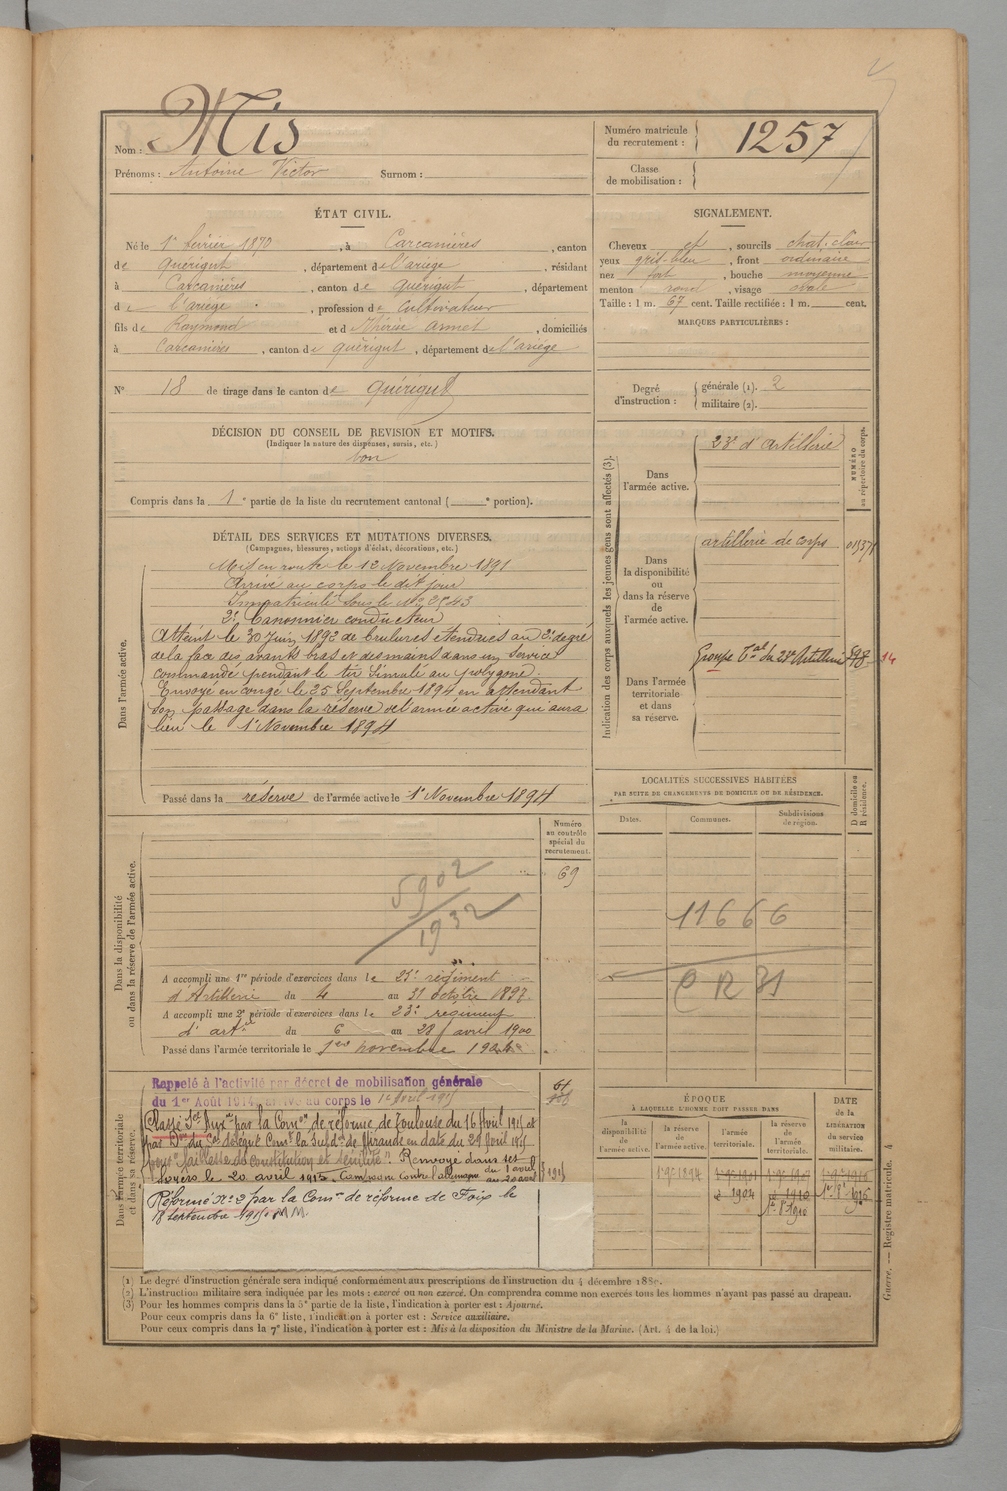 Nom : Mis
Prénoms : Antoine Victor Surnom :
Numéro matricule du recrutement : 1257
Classe de mobilisation :
ÉTAT CIVIL.
Né le 1er février 1870, à Carcanières, canton
de Quérigut, département de l'ariège, résidant
à Carcanières, canton de Quérigut, département
de l'ariège, profession de Cultivateur
fils de Raymond et de Thérèse Armet, domiciliés
à Carcanières, canton de Quérigut, département de l'ariège
SIGNALEMENT.
Cheveux et, sourcils chat. clair
yeux gris-bleu, front ordinaire
nez fort, bouche moyenne
menton rond, visage ovale
Taille : 1 m. 67 cent. Taille rectifiée : 1 m. cent.
MARQUES PARTICULIÈRES :
No 18 de tirage dans le canton de Quérigut
Degré d'instruction : générale (1). 2
militaire (2).
DÉCISION DU CONSEIL DE REVISION ET MOTIFS.
(Indiquer la nature des dispenses, sursis, etc.)
bon
Compris dans la 1e partie de la liste du recrutement cantonal ( e portion).
DÉTAIL DES SERVICES ET MUTATIONS DIVERSES.
(Campagnes, blessures, actions d'éclat, décorations, etc.)
Dans l'armée active.
Mis en route le 12 Novembre 1891
Arrivé au corps le dit jour
Immatriculé sous le No 2543
2e Canonnier conducteur
Atteint le 30 Juin 1892 de brulures etendues au 2e degré
de la face des avants bras et des mains dans un service
commandé pendant le tir simulé au polygone.
Envoyé en congé le 25 Septembre 1894 en attendant
son passage dans la réserve de l'armée active qui aura
lieu le 1er Novembre 1894
Passé dans la réserve de l'armée active le 1er Novembre 1894
Indication des corps auxquels les jeunes gens sont affectés (3).
NUMÉRO au répertoire du corps.
Dans l'armée active.
23e d'Artillerie
Dans la disponibilité ou dans la réserve de l'armée active.
artillerie de corps
Dans l'armée territoriale et dans sa réserve.
Groupe Tal du 23e Artillerie
LOCALITÉS SUCCESSIVES HABITÉES
PAR SUITE DE CHANGEMENTS DE DOMICILE OU DE RÉSIDENCE.
D domicile ou R résidence.
Dates. Communes. Subdivisions de région.
11666
C R 31
Dans la disponibilité ou dans la réserve de l'armée active.
Numéro au contrôle spécial du recrutement.
69
5902
1932
A accompli une 1re période d'exercices dans le 23e régiment
d'Artillerie du 4 au 31 octobre 1897
A accompli une 2e période d'exercices dans le 23e regiment
d'artie du 6 au 28 avril 1900
Passé dans l'armée territoriale le 1er novembre 1904
Dans l'armée territoriale et dans sa réserve.
Rappelé à l'activité par décret de mobilisation générale
du 1er Août 1914, arrivé au corps le 1er Avril 1915
Classé Sce Auxre par la Comon de réforme de Toulouse du 16 Avril 1915 et
par Don du Gal délégué Comt la Subdon de Mirande en date du 29 Avril 1915
pour "faiblesse de constitution et sénilité". Renvoyé dans ses
foyers le 20 avril 1915. Campagne contre l'allemagne du 1 avril
au 20 avril 1915
Réformé No 2 par la Comon de réforme de Foix le
18 septembre 1915. M M.
ÉPOQUE
À LAQUELLE L'HOMME DOIT PASSER DANS
la disponibilité de l'armée active.
la réserve de l'armée active.
l'armée territoriale.
la réserve de l'armée territoriale.
DATE de la LIBÉRATION du service militaire.
1er 9bre 1894
1904
1910
1er 8bre 1910
1er 8bre 1916
(1) Le degré d'instruction générale sera indiqué conformément aux prescriptions de l'instruction du 4 décembre 1889.
(2) L'instruction militaire sera indiquée par les mots : exercé ou non exercé. On comprendra comme non exercés tous les hommes n'ayant pas passé au drapeau.
(3) Pour les hommes compris dans la 5e partie de la liste, l'indication à porter est : Ajourné.
Pour ceux compris dans la 6e liste, l'indication à porter est : Service auxiliaire.
Pour ceux compris dans la 7e liste, l'indication à porter est : Mis à la disposition du Ministre de la Marine. (Art. 4 de la loi.)
Guerre. — Registre matricule. 4